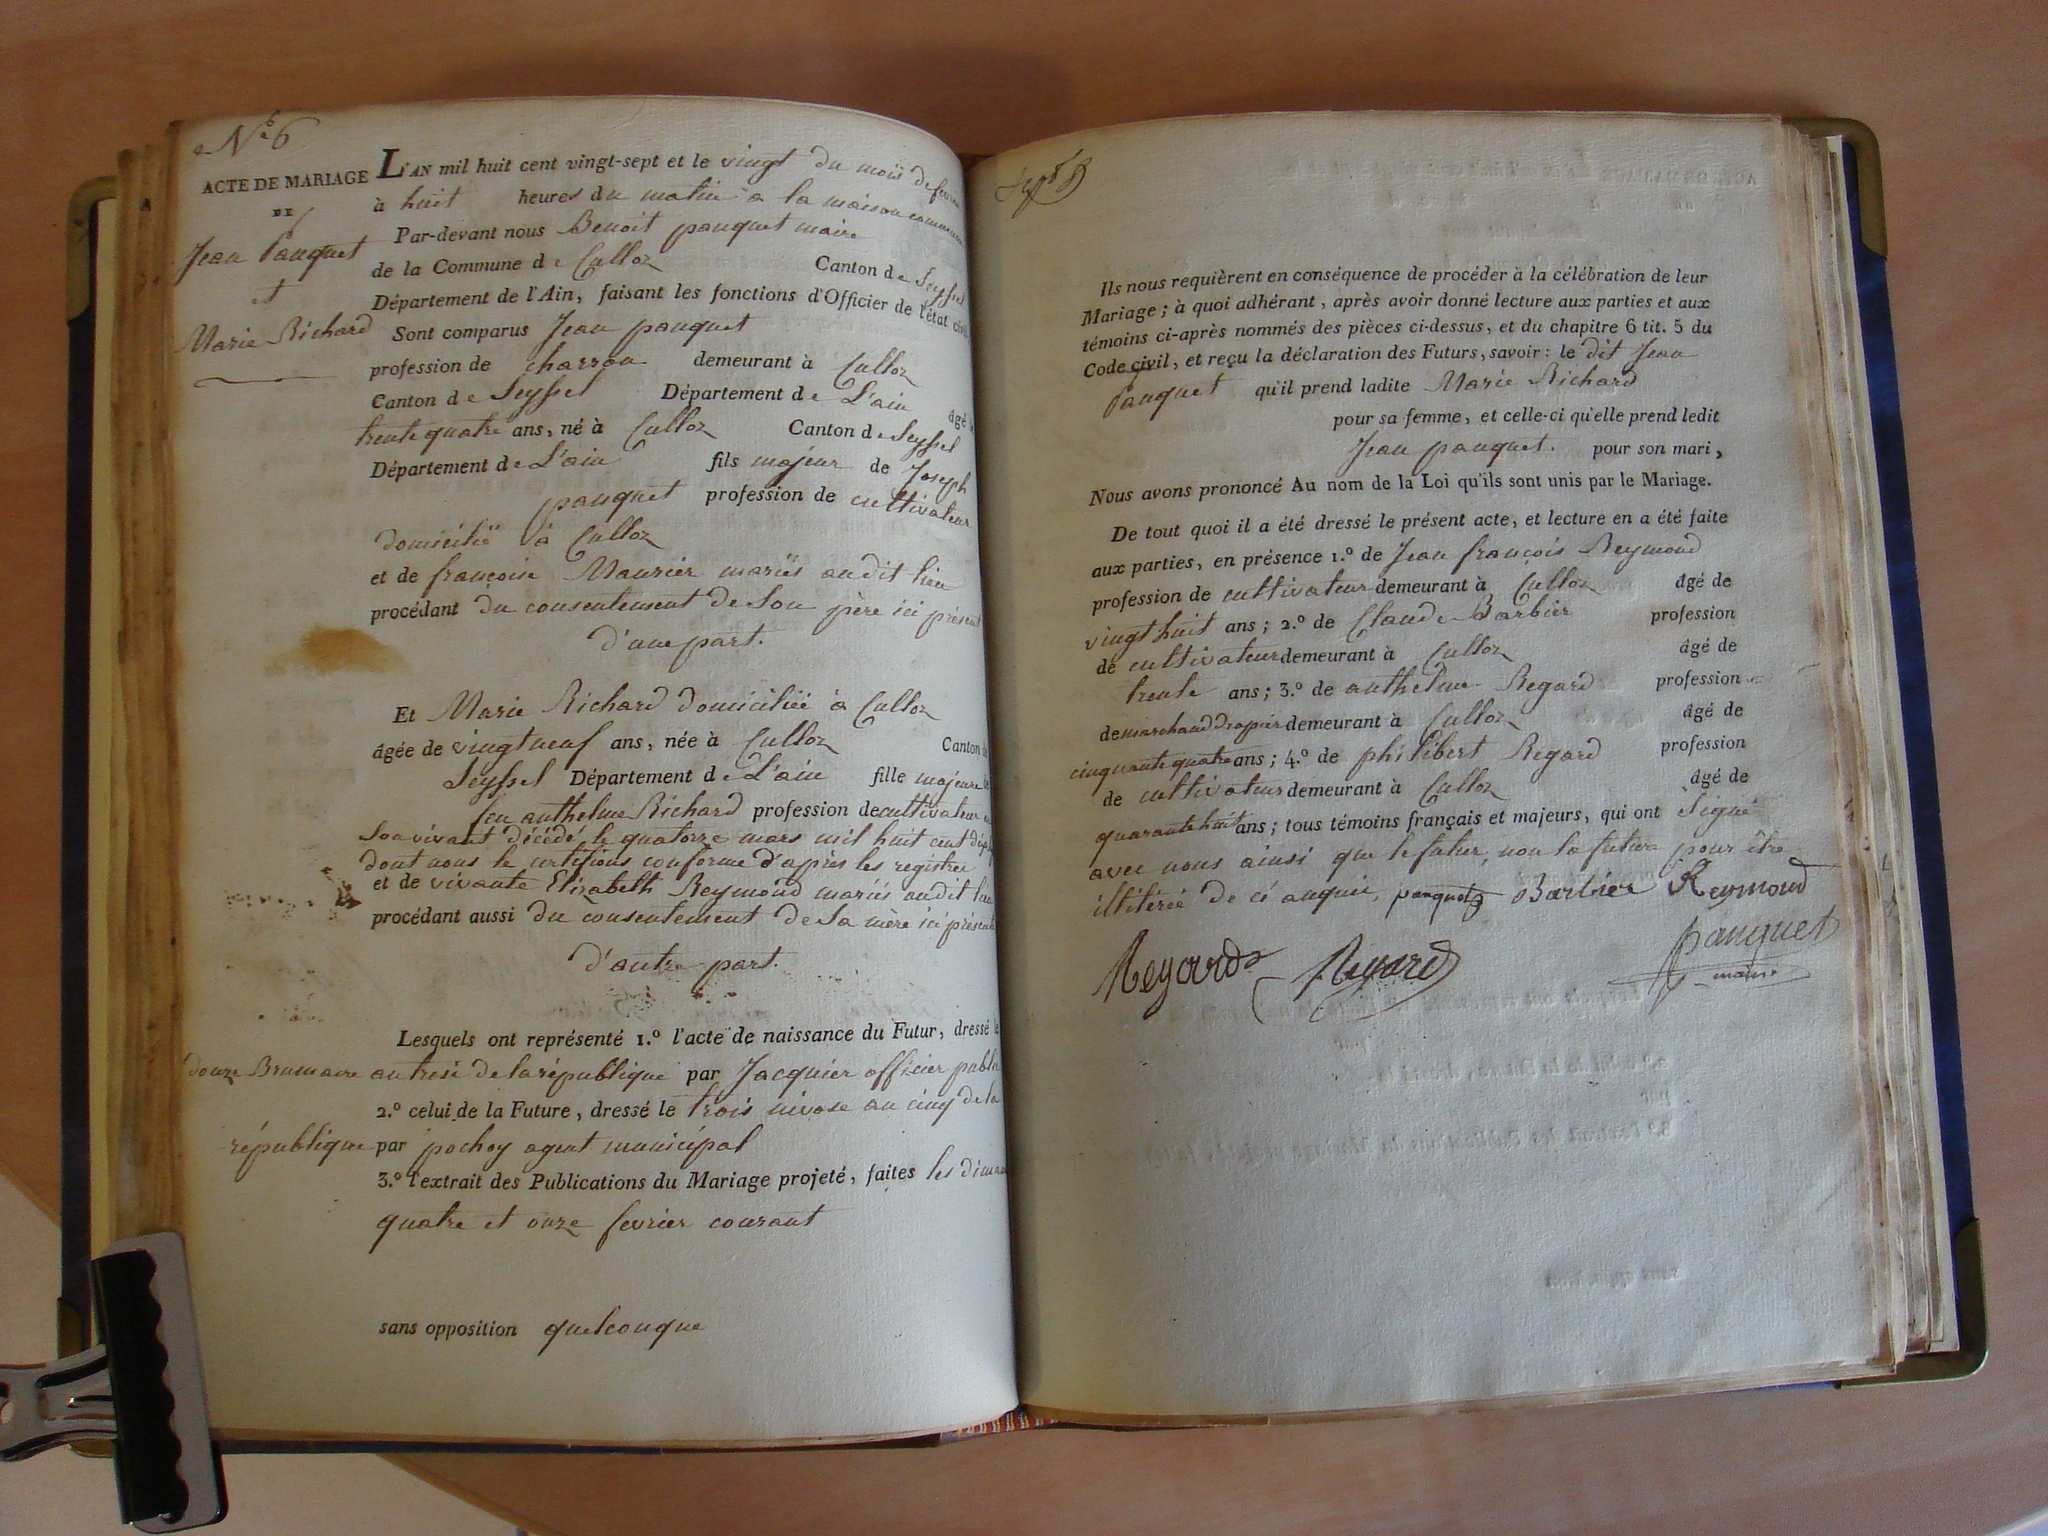 N.° 6
ACTE DE MARIAGE
DE
Jean Pauquet
et
Marie Richard
L'AN mil huit cent vingt-sept et le vingt du mois de fevrier
à huit heures du matin à la maison commune
Par-devant nous Benoit pauquet maire
de la Commune de Culloz Canton de Seyssel
Département de l'Ain, faisant les fonctions d'Officier de l'état civil
Sont comparus Jean pauquet
profession de charron demeurant à Culloz
Canton de Seyssel Département de L'ain âgé de
trente quatre ans, né à Culloz Canton de Seyssel
Département de L'ain fils majeur de Joseph
pauquet profession de cultivateur
domicilié à Culloz
et de francoise Maurier mariés audit lieu
procédant du consentement de Son père ici présent
d'une part.
Et Marie Richard domiciliée à Culloz
âgée de vingt neuf ans, née à Culloz Canton de
Seyssel Département de L'ain fille majeure de
feu anthelme Richard profession de cultivateur en
Son vivant décédé le quatorze mars mil huit cent
dont nous le certifions conforme d'après les registres
et de vivante Elizabeth Reymond mariés audit lieu
procédant aussi du consentement de Sa mère ici présente
d'autre part.
Lesquels ont représenté 1.° l'acte de naissance du Futur, dressé le
douze Brumaire an tresé de la république par Jacquier officier public
2.° celui de la Future, dressé le trois nivose an cinq de la
république par pochoy agent municipal
3.° l'extrait des Publications du Mariage projeté, faites les diman
quatre et onze fevrier courant
sans opposition quelconque
Ils nous requièrent en conséquence de procéder à la célébration de leur
Mariage ; à quoi adhérant, après avoir donné lecture aux parties et aux
témoins ci-après nommés des pièces ci-dessus, et du chapitre 6 tit. 5 du
Code civil, et reçu la déclaration des Futurs, savoir : le dit Jean
Pauquet qu'il prend ladite Marie Richard
pour sa femme, et celle-ci qu'elle prend ledit
Jean pauquet. pour son mari,
Nous avons prononcé Au nom de la Loi qu'ils sont unis par le Mariage.
De tout quoi il a été dressé le présent acte, et lecture en a été faite
aux parties, en présence 1.° de Jean françois Reymond
profession de cultivateur demeurant à Culloz âgé de
vingt huit ans ; 2.° de Claude Barbier profession
de cultivateur demeurant à Culloz âgé de
trente ans ; 3.° de anthelme Regard profession
de marchand drapier demeurant à Culloz âgé de
cinquante quatre ans ; 4.° de philibert Regard profession
de cultivateur demeurant à Culloz âgé de
quarante huit ans ; tous témoins français et majeurs, qui ont Signé
avec nous ainsi que le futur, non la future pour être
illitérée de ce enquise, pauquet Barbier Reymond
Regard Regard pauquet
maire